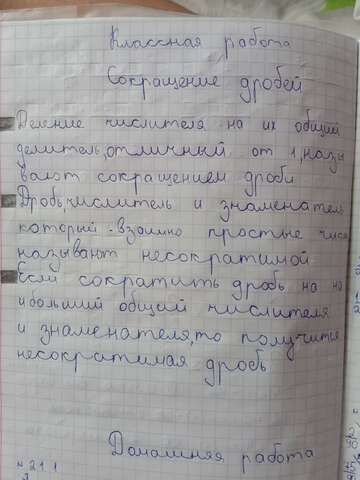 Классная работа
Сокращение дробей
Деление числителя на их общий
делитель, отличный от 1, назы
вают сокращением дроби
Дробь, числитель и знаменатель
который - взаимно простые числ
называют несократимой
Если сократить дробь на на
ибольший общий числителя
и знаменателя, то получится
несократимая дробь
Домашняя работа
№ 211